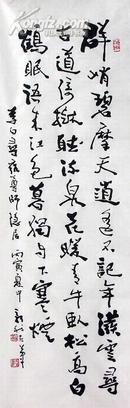 群峭碧摩天逍遥不記年撥雲尋
古道倚樹聽流泉花暖青牛臥松高白
鶴眠語来江色暮獨自下寒煙
李白尋雍尊師隱居 丙寅夏中